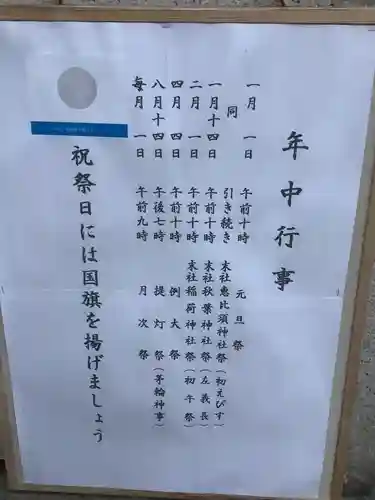 年中行事
一月 一日 午前十時 元旦祭
同 引き続き 末社恵比須神社祭(初えびす)
一月十四日 午前十時 末社秋葉神社祭(左義長)
二月 一日 午前十時 末社稲荷神社祭(初午祭)
四月 四日 午前十時 例大祭
八月十四日 午後七時 提灯祭(茅輪神事)
毎月 一日 午前九時 月次祭
祝祭日には国旗を揚げましょう